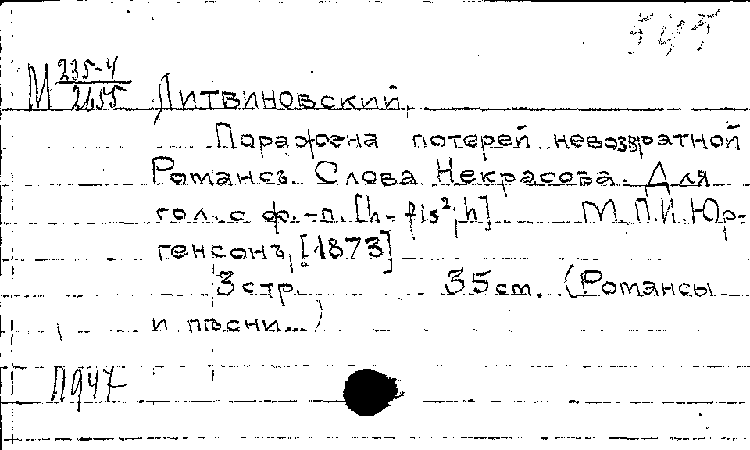 545
М 235-4
2655
Литвиновский,
Поражена потерей невозвратной
Романсъ. Слова Некрасова. Для
гол. с ф.-п. [h- fis²; h] М. П. И. Юр-
генсонъ, [1873]
3 стр. 35 cm. (Романсы
и пѣсни...)
П947